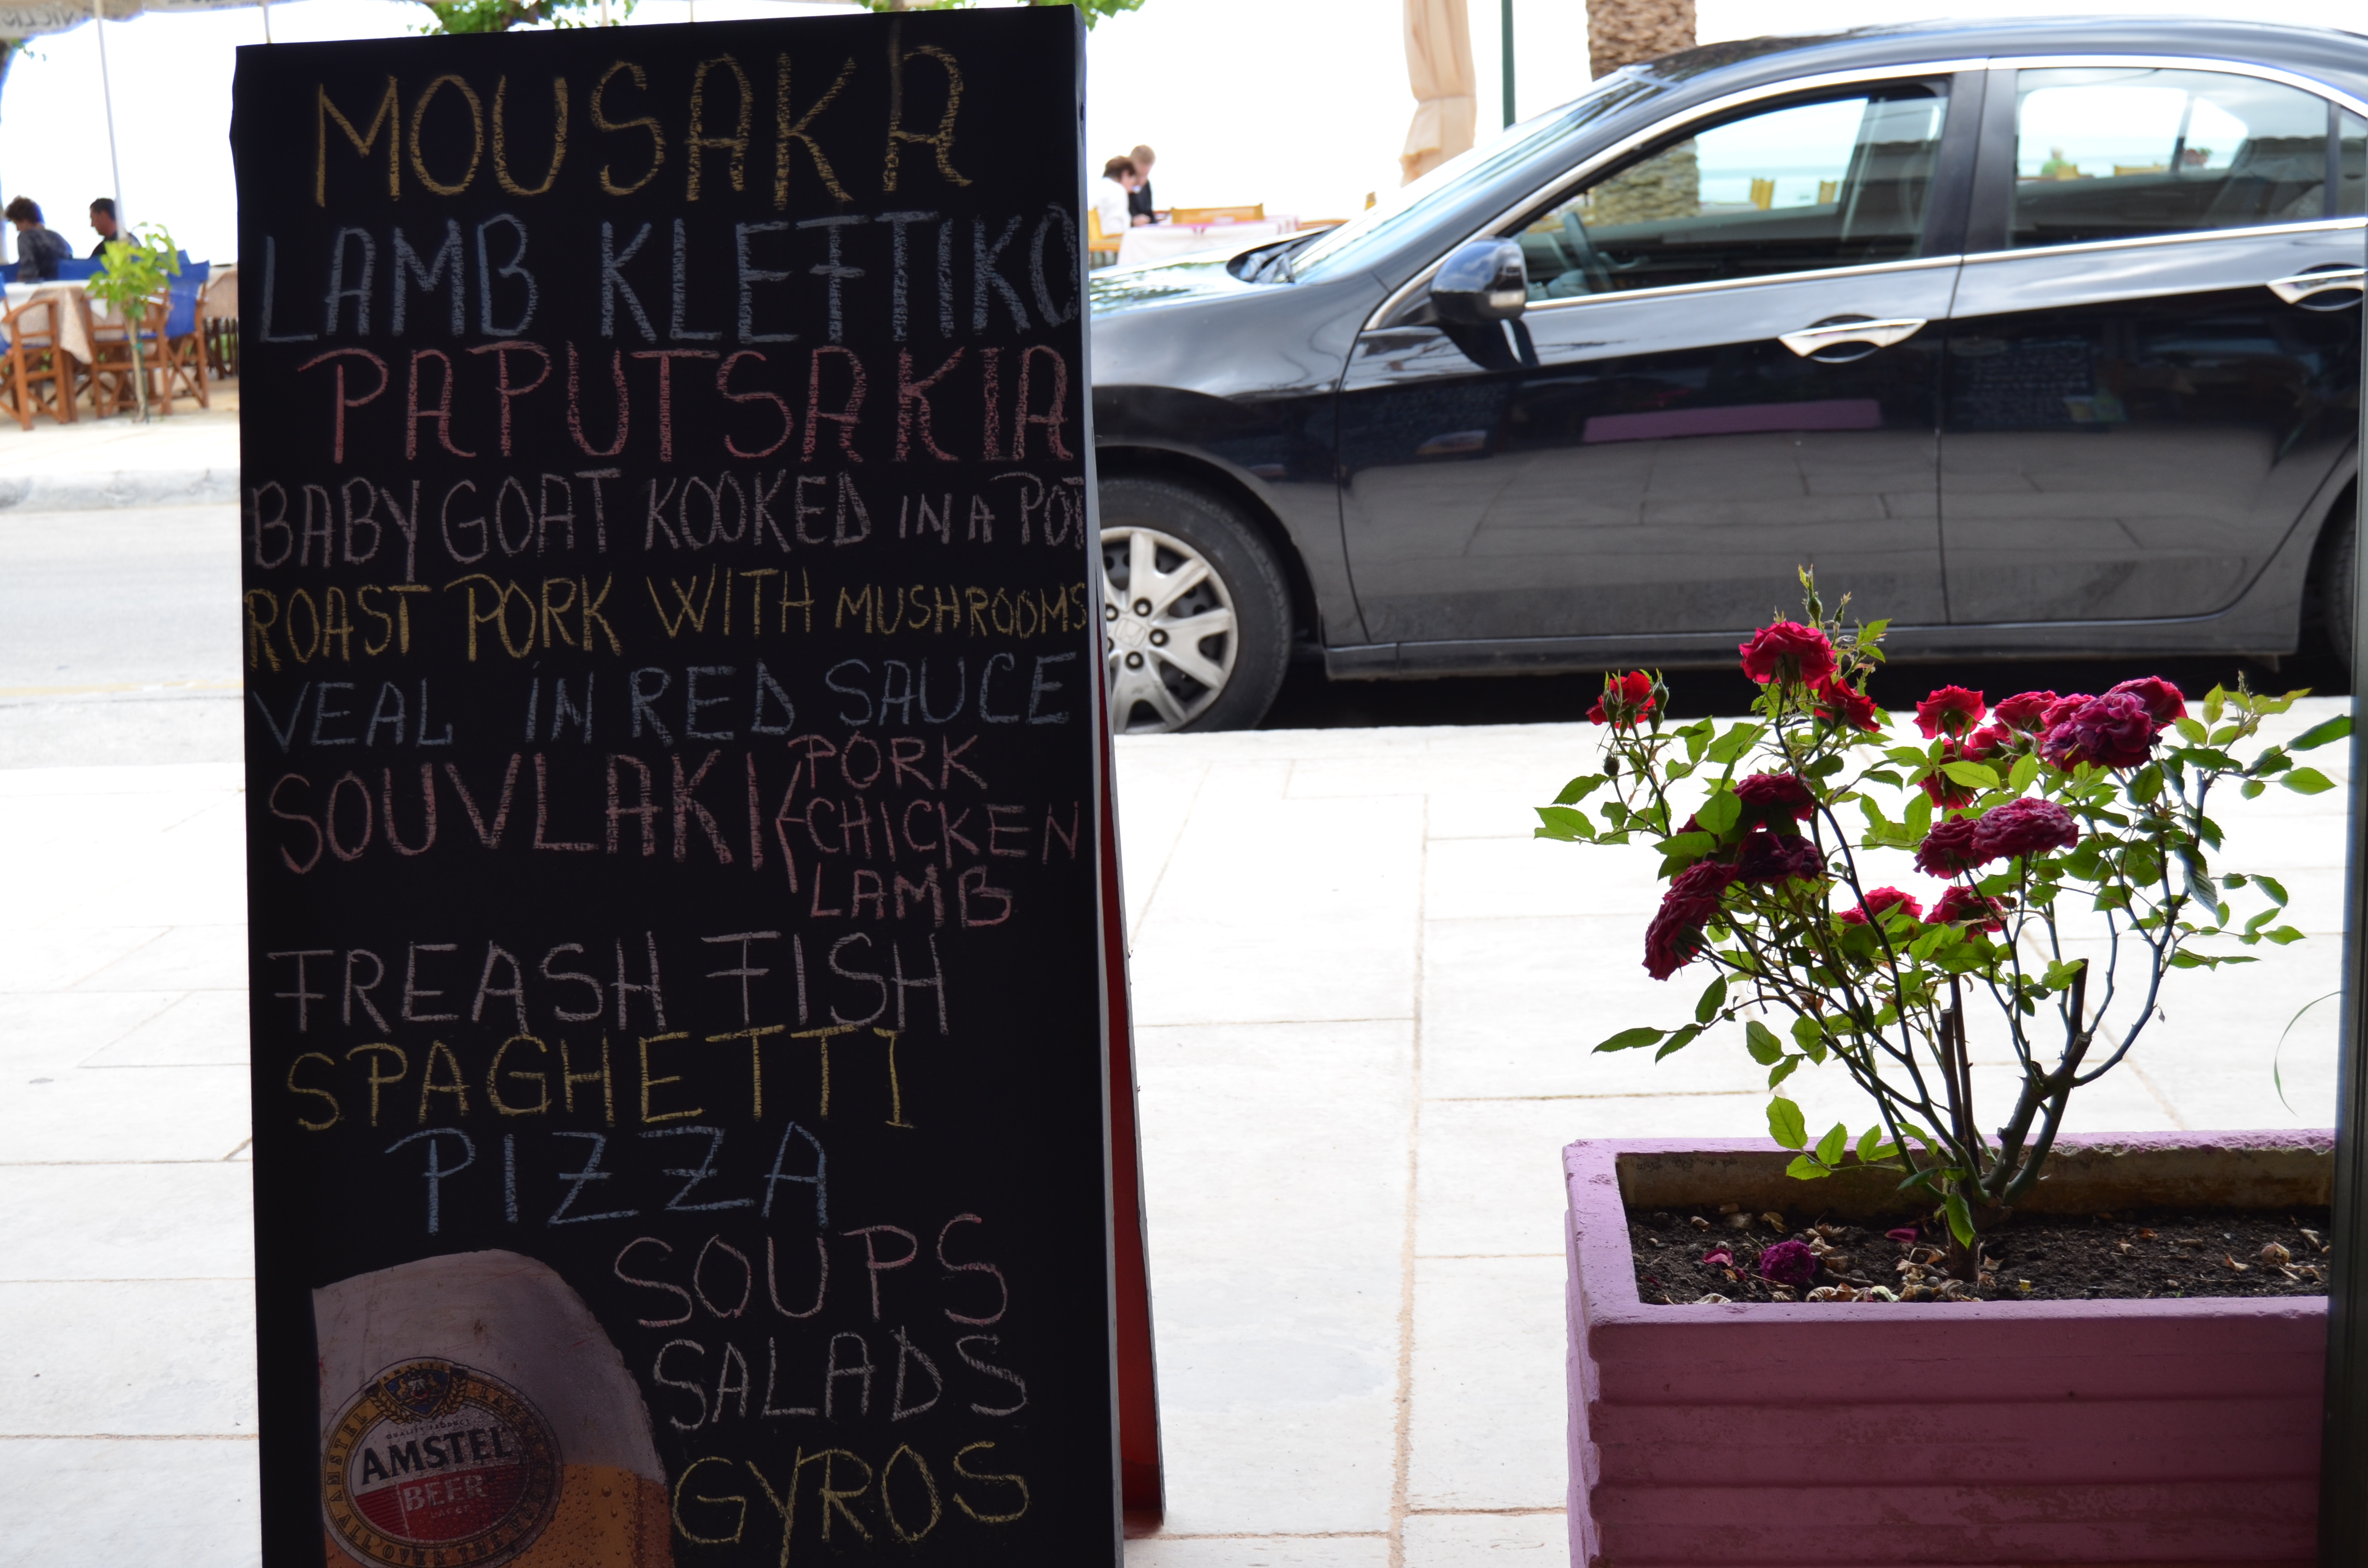 MOUSAKA
LAMB KLEFTIKO
PAPUTSAKIA
BABY GOAT KOOKED IN A POT
ROAST PORK WITH MUSHROOMS
VEAL IN RED SAUCE
SOUVLAKI PORK
CHICKEN
LAMB
FREASH FISH
SPAGHETTI
PIZZA
SOUPS
SALADS
GYROS
AMSTEL
BEER